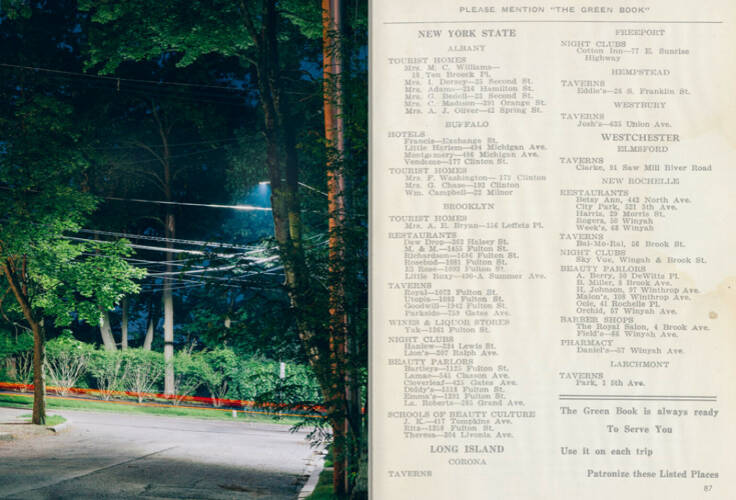 PLEASE MENTION "THE GREEN BOOK"
NEW YORK STATE
ALBANY
TOURIST HOMES
Mrs. M. C. Williams—
18 Ten Broeck Pl.
Mrs. I. Dorsey—25 Second St.
Mrs. Adams—216 Hamilton St.
Mrs. G. Bedell—23 Second St.
Mrs. C. Madison—291 Orange St.
Mrs. A. J. Oliver—42 Spring St.
BUFFALO
HOTELS
Francis—Exchange St.
Little Harlem—494 Michigan Ave.
Montgomery—486 Michigan Ave.
Vendome—177 Clinton St.
TOURIST HOMES
Mrs. F. Washington—172 Clinton
Mrs. G. Chase—192 Clinton
Wm. Campbell—22 Milnor
BROOKLYN
TOURIST HOMES
Mrs. A. E. Bryan—156 Leffets Pl.
RESTAURANTS
Dew Drop—363 Halsey St.
M. & M.—1455 Fulton St.
Richardson—1686 Fulton St.
Rosebud—1981 Fulton St.
El Rose—1093 Fulton St.
Little Roxy—490-A Summer Ave.
TAVERNS
Royal—1073 Fulton St.
Utopia—1093 Fulton St.
Goodwill—1942 Fulton St.
Parkside—759 Gates Ave.
WINES & LIQUOR STORES
Yak—1361 Fulton St.
NIGHT CLUBS
Hanlew—324 Lewis St.
Lion's—207 Ralph Ave.
BEAUTY PARLORS
Bartleys—1125 Fulton St.
Lamae—543 Classon Ave.
Cloverleaf—435 Gates Ave.
Diddy's—1518 Fulton St.
Emma's—1391 Fulton St.
La. Roberts—285 Grand Ave.
SCHOOLS OF BEAUTY CULTURE
J. K.—417 Tompkins Ave.
Ritz—1259 Fulton St.
Theresa—304 Livonia Ave.
LONG ISLAND
CORONA
TAVERNS
FREEPORT
NIGHT CLUBS
Cotton Inn—77 E. Sunrise
Highway
HEMPSTEAD
TAVERNS
Eddie's—26 S. Franklin St.
WESTBURY
TAVERNS
Josh's—635 Union Ave.
WESTCHESTER
ELMSFORD
TAVERNS
Clarke, 91 Saw Mill River Road
NEW ROCHELLE
RESTAURANTS
Betsy Ann, 442 North Ave.
City Park, 521 5th Ave.
Harris, 29 Morris St.
Rogers, 50 Winyah
Week's, 68 Winyah
TAVERNS
Bal-Mo-Ral, 56 Brook St.
NIGHT CLUBS
Sky Vue, Wingah & Brook St.
BEAUTY PARLORS
A. Berry, 50 DeWitts Pl.
B. Miller, 8 Brook Ave.
H. Johnson, 97 Winthrop Ave.
Malon's, 108 Winthrop Ave.
Ocie, 41 Rochelle Pl.
Orchid, 57 Winyah Ave.
BARBER SHOPS
The Royal Salon, 4 Brook Ave.
Field's—66 Winyah Ave.
PHARMACY
Daniel's—57 Winyah Ave.
LARCHMONT
TAVERNS
Park, 1 5th Ave.
The Green Book is always ready
To Serve You
Use it on each trip
Patronize these Listed Places
87